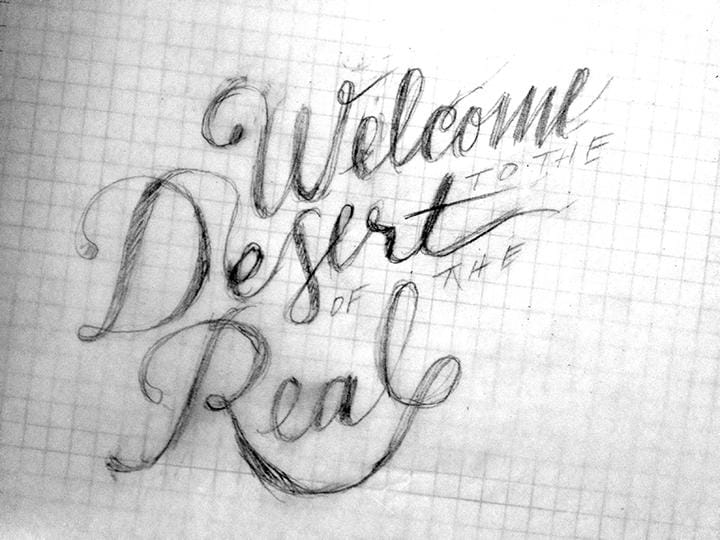 Welcome
TO THE
Desert
OF THE
Real